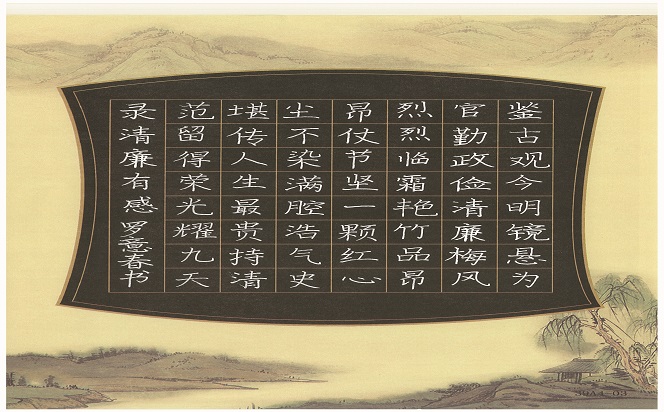 鉴古观今明镜悬为
官勤政俭清廉梅风
烈烈临霜艳竹品昂
昂仗节坚一颗红心
尘不染满腔浩气史
堪传人生最贵持清
范留得荣光耀九天
录清廉有感罗意春书